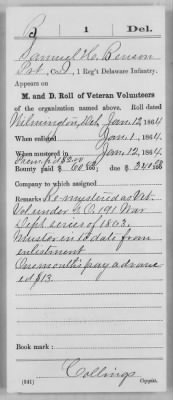 B | 1 | Del.
Samuel H. Benson
Pvt, Co. D, 1 Reg't Delaware Infantry.
Appears on
M. and D. Roll of Veteran Volunteers
of the organization named above. Roll dated
Wilmington, Del, Jan. 12, 1864
When enlisted Jan. 1, 1864.
When mustered in Jan. 12, 1864.
Bounty paid $ 60 00/100 due $ 340 00/100
Company to which assigned
Remarks: Re-mustered as Vet.
Vol. under G.O. 191 War
Dep't series of 1863.
Muster in to date from
enlistment
One month's pay advanc
ed $13.
Book mark:
Collings
(341) Copyist.